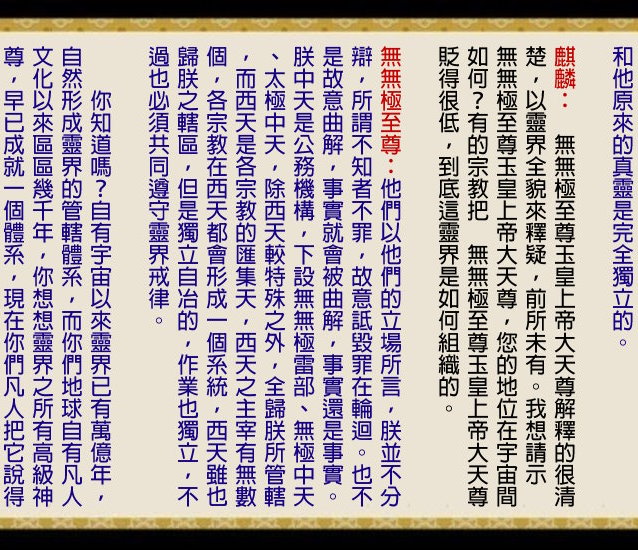 和他原來的真靈是完全獨立的。
麒麟：　無無極至尊玉皇上帝大天尊解釋的很清
楚，以靈界全貌來釋疑，前所未有。我想請示
無無極至尊玉皇上帝大天尊，您的地位在宇宙間
如何？有的宗教把　無無極至尊玉皇上帝大天尊
貶得很低，到底這靈界是如何組織的。
無無極至尊：他們以他們的立場所言，朕並不分
辯，所謂不知者不罪，故意詆毀罪在輪迴。也不
是故意曲解，事實就會被曲解，事實還是事實。
朕中天是公務機構，下設無無極雷部、無極中天
、太極中天，除西天較特殊之外，全歸朕所管轄
，而西天是各宗教的匯集天，西天之主宰有無數
個，各宗教在西天都會形成一個系統，西天雖也
歸朕之轄區，但是獨立自冶的，作業也獨立，不
過也必須共同遵守靈界戒律。
你知道嗎？自有宇宙以來靈界已有萬億年，
自然形成靈界的管轄體系，而你們地球自有凡人
文化以來區區幾千年，你想想靈界之所有高級神
尊，早已成就一個體系，現在你們凡人把它說得